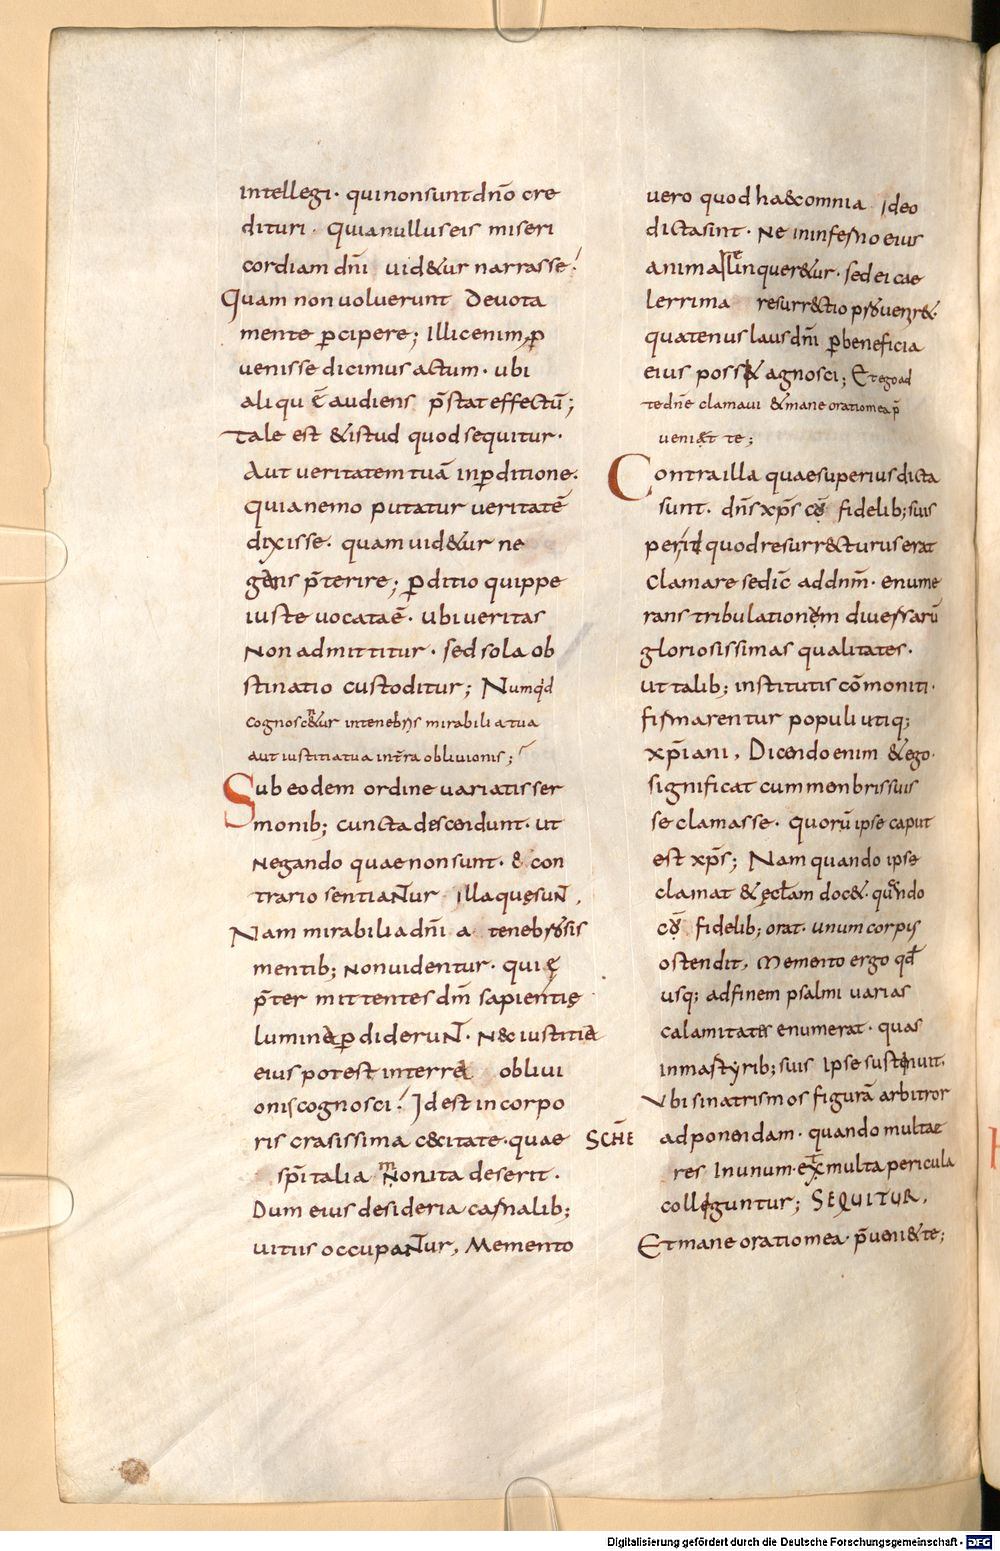 intellegi· quinonsuntdn̄o cre
dituri · Quianulluseis miseri
cordiam dn̄i uid&ur narrasse·
Quam non uoluerunt Deuota
mente ꝑcipere; Illicenim ꝑ
uenisse dicimus actum· ubi
aliqui ē audiens p̄stat effectū;
Tale est &istud quod sequitur·
Aut ueritatem tuā inꝑditione·
Quia nemo putatur ueritatē
dixisse· quam uid&ur ne
gans p̄terire; ꝑditio quippe
iuste uocataē· Ubi ueritas
Non admittitur· sed sola ob
stinatio custoditur; Numq'd
cognosc&ur intenebris mirabilia tua
aut iustitia tua int̄ra obliuionis;
Sub eodem ordine uariatis ser
monib; cuncta descendunt· ut
Negando quae non sunt· & con
trario sentiantur Illa quęsunt,
Nam mirabilia dn̄i a tenebrosis
mentib; Non uidentur· qui ę
p̄ter mittentes dn̄m sapientię
lumina ꝑdiderunt· Nec iustitia
eius potest interra obliui
onis cognosci! Id est in corpo
ris crasissima cęcitate· quae
sp̄italia Non ita deserit·
Dum eius desideria carnalib;
uitiis occupantur, Memento
uero quod ha&comnia Ideo
dicta sint· Ne in inferno eius
anima linquer&ur· sed ei cae
lerrima resurr&ctio prouenir&·
quatenus laus dn̄i ꝑ beneficia
eius poss& agnosci; Et ego ad
te dn̄e clamaui & mane oratio mea p̄
ueni&t te;
Contra illa quae superius dicta
sunt· dn̄s xp̄s cū fidelib; suis
perit quod resurr&cturus erat
Clamare se dic̄ ad dn̄m· enume
rans tribulationem diuersarū
gloriosissimas qualitates·
ut talib; institutis cōmoniti·
firmarentur populi utiq;
xp̄iani, Dicendo enim &ego·
significat cum menbris suis
se clamasse· Quorū ipse caput
est xp̄s; Nam quando ipse
clamat & ęcl̄am doc&· quando
cū fidelib; orat· unum corpus
ostendit, Memento ergo qd̄
usq; ad finem psalmi uarias
calamitates enumerat· quas
in martyrib; suis Ipse sustinuit·
SCHE Vbi sinatrismos figurā arbitror
adponendam· quando multae
res In unum· & multa pericula
colliguntur; SEQUITUR,
Et mane oratio mea· p̄ueni&te;
Digitalisierung gefördert durch die Deutsche Forschungsgemeinschaft - DFG